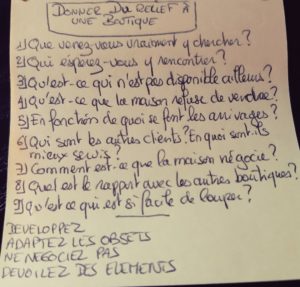 DONNER DU RELIEF À
UNE BOUTIQUE
1) Que venez-vous vraiment y chercher?
2) Qui espérez-vous y rencontrer?
3) Qu'est-ce qui n'est pas disponible ailleurs?
4) Qu'est-ce que la maison refuse de vendre?
5) En fonction de quoi se font les arrivages?
6) Qui sont les autres clients? En quoi sont-ils
mieux servis?
7) Comment est-ce que la maison négocie?
8) Quel est le rapport avec les autres boutiques?
9) Qu'est ce qui est si facile de louper?
DEVELOPPEZ
ADAPTEZ LES OBJETS
NE NEGOCIEZ PAS
DEVOILEZ DES ELEMENTS